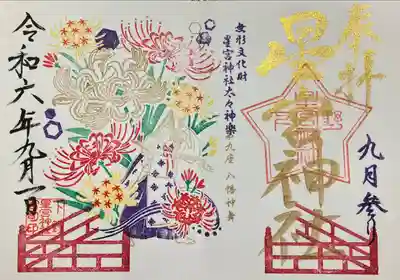 奉拝
星宮神社
九月参り
無形文化財
星宮神社太々神楽
第九座 八幡神舞
令和六年九月一日